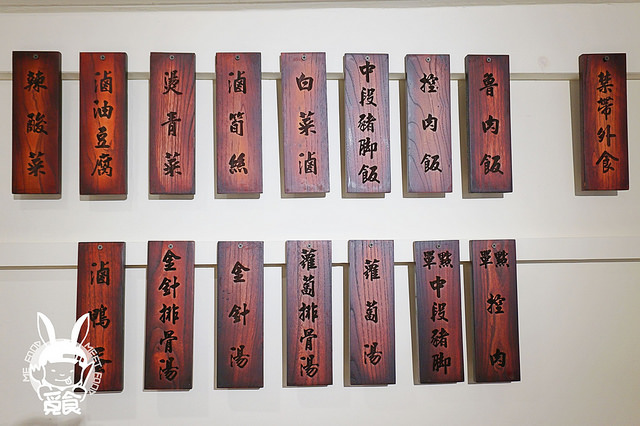 禁帶外食
魯肉飯
控肉飯
中段豬脚飯
白菜滷
滷筍絲
燙青菜
滷油豆腐
辣酸菜
單點控肉
單點中段豬脚
蘿蔔湯
蘿蔔排骨湯
金針湯
金針排骨湯
滷鴨
ME FOOD
MEET FOOD
覓食